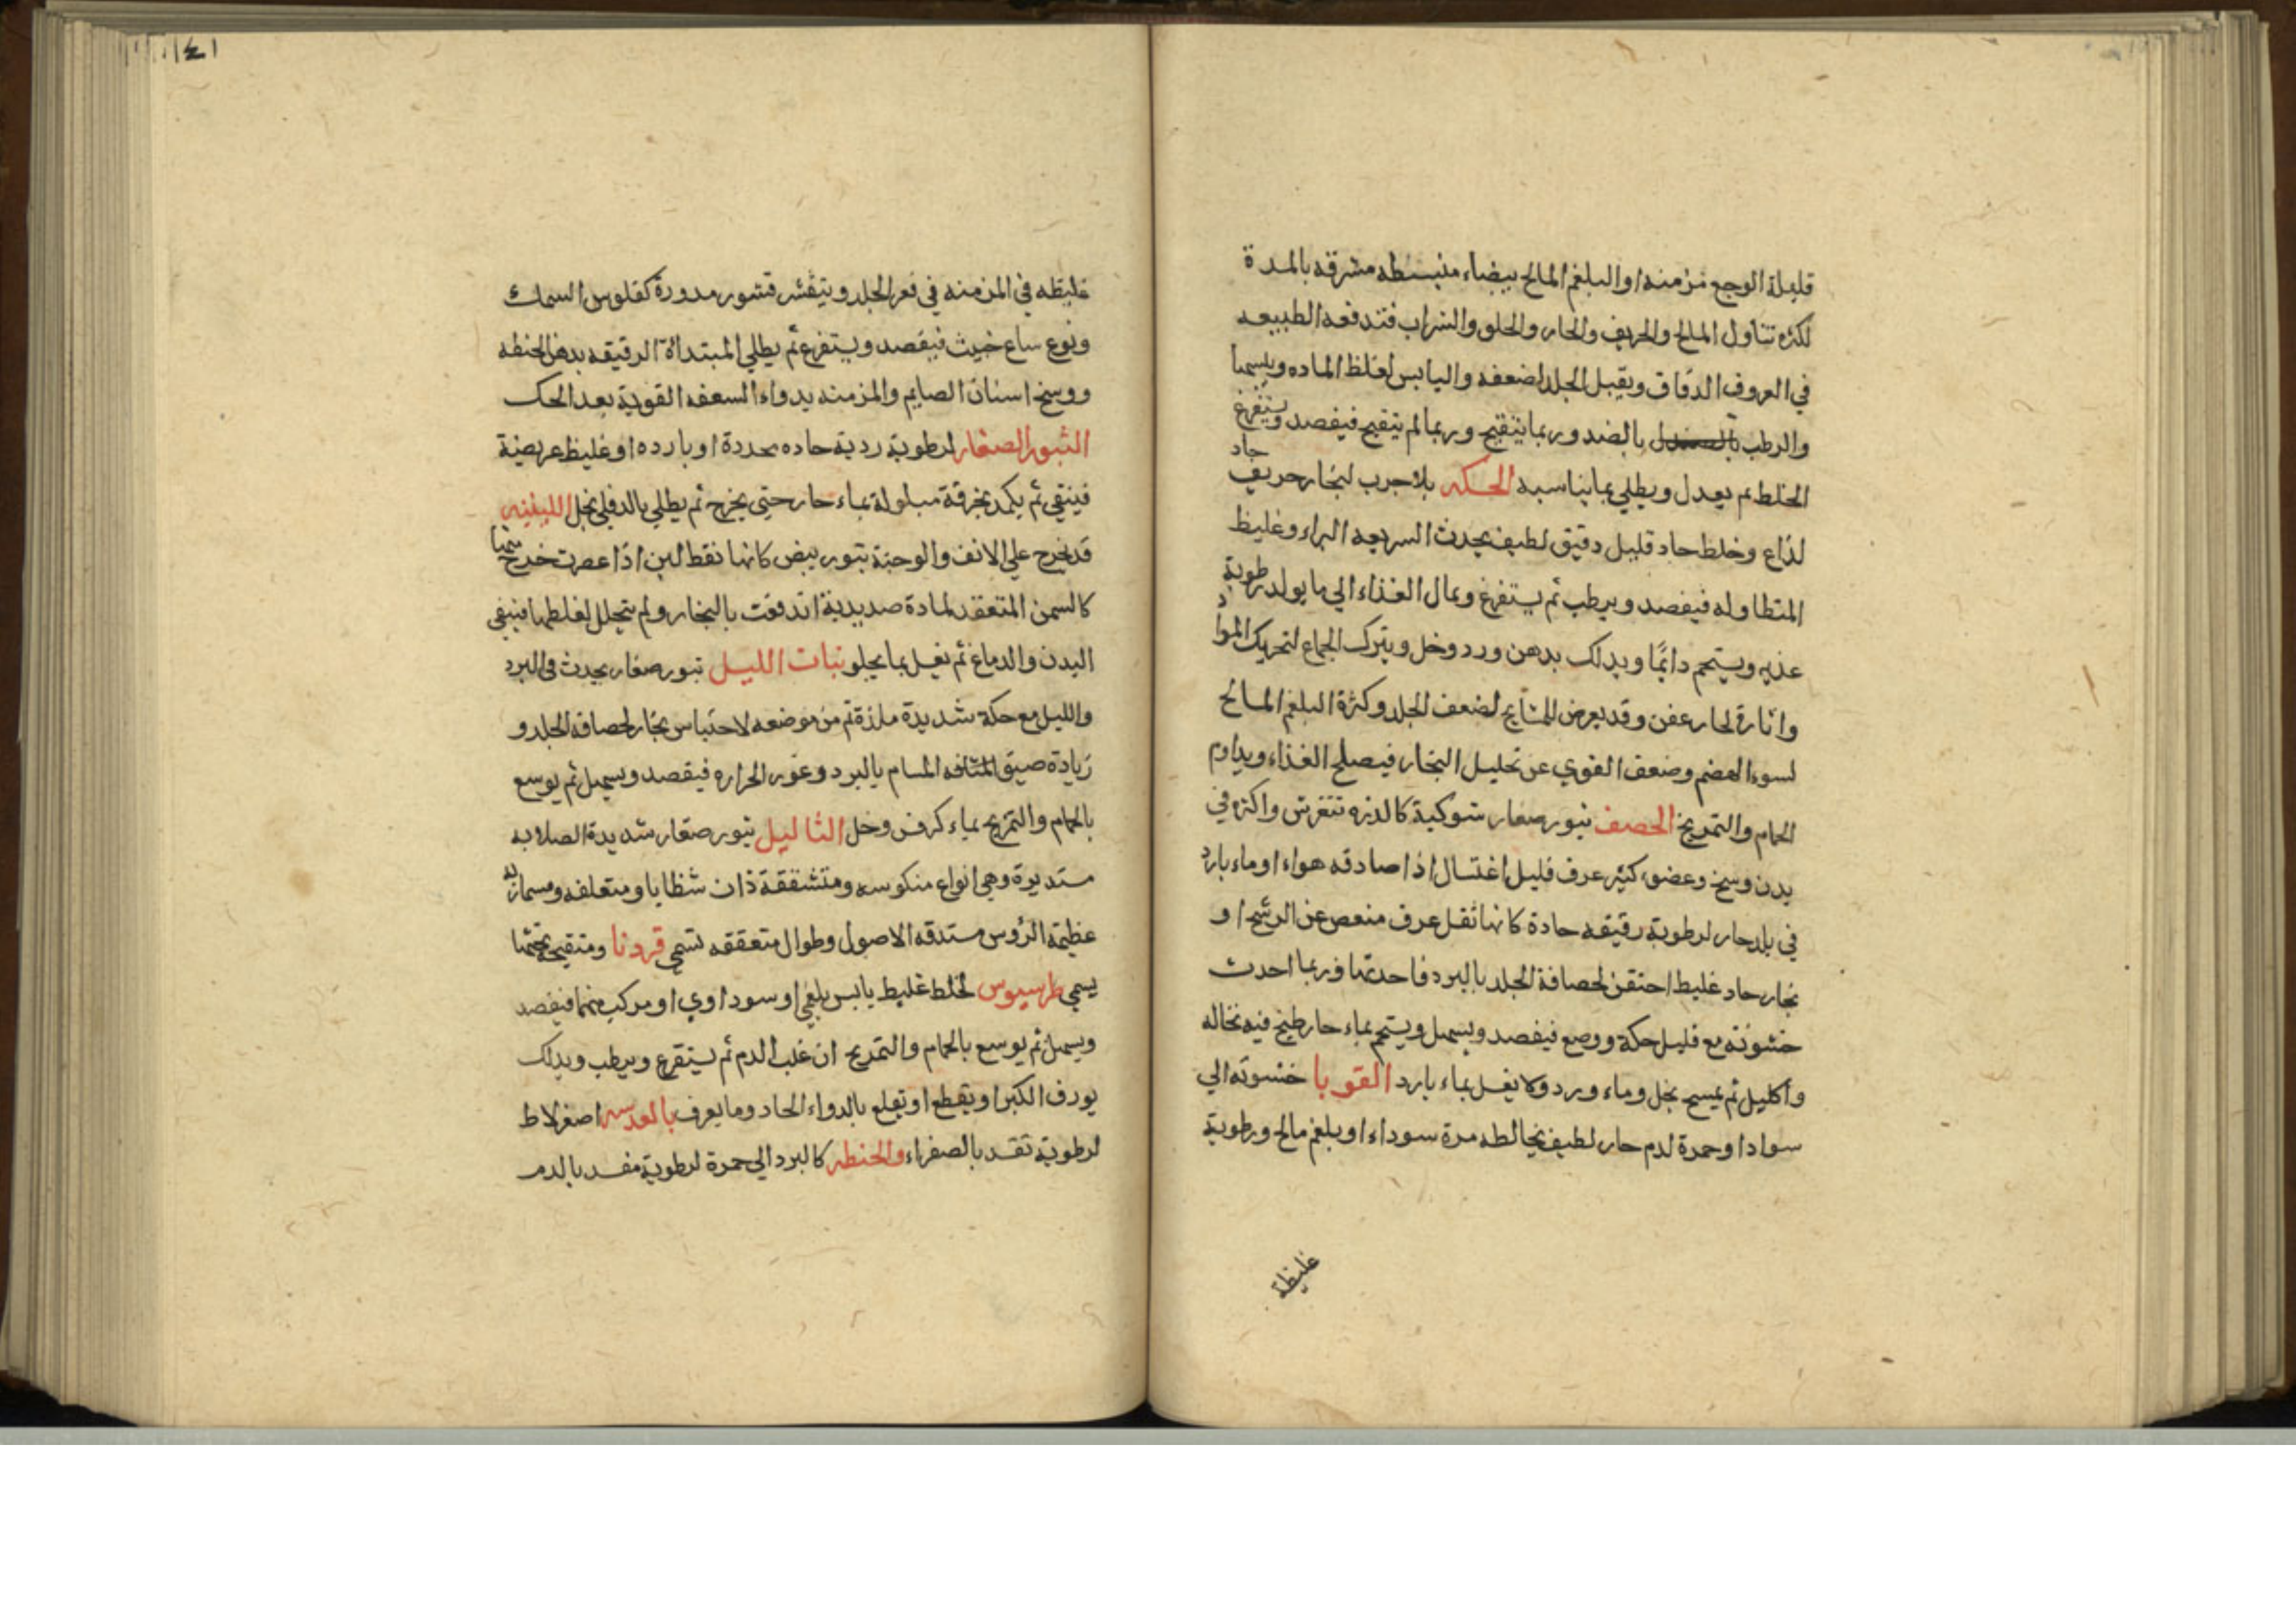 قليلة الوجع مزمنه او البلغم المالح بيضاء منبسطه مشرقه بالمدة
لكثره تناول المالح والحريف والحار والحلو والشراب فتدفعه الطبيعه
في العروق الدقاق ويقبل الجلد لضعفه واليابس لغلظ الماده ويبسها
والرطب بالضد وربما يتقيح وربما لم يتقيح فيفصد ويستفرغ
الخلط ثم يعدل ويطلي بما يناسبه الحكه بلا جرب لبخار حريف حاد
لذاع وخلط حاد قليل دقيق لطيف يحدث السريعه البراء وغليظ
المتطاوله فيفصد ويرطب ثم يستفرغ ويمال الغذاء الي ما يولد رطوبة
عذبه ويستحم دايمًا ويدلك بدهن ورد وخل ويترك الجماع لتحريك المواد
واثارة لحار عفن وقد يعرض للمشايح لضعف الجلد وكثرة البلغم المالح
لسوء الهضم وضعف القوي عن تحليل البخار فيصلح الغذاء ويداوم
الحمام والتمريخ الحصف بثور صغار شوكية كالذره تنفرش واكثره في
بدن وسخ وعضو كثير عرق قليل اغتسال اذا صادفه هواء او ماء بارد
في بلد حار لرطوبة رقيقه حادة كانها ثقل عرق منعص عن الرشح او
بخار حاد غليظ احتقن لحصافة الجلد بالبرد فاحدثها وربما احدث
خشونة مع قليل حكة ووجع فيفصد ويسهل ويستحم بماء حار طبخ فيه نخاله
واكليل ثم يمسح بخل وماء ورد ولا يغسل بماء بارد القوبا خشونة الي
سواد او حمرة لدم حار لطيف يخالطه مرة سوداء او بلغم مالح ورطوبة
غليظة
١٤١
غليظه في المزمنه في قعر الجلد ويتقشر قشور مدورة كفلوس السمك
ونوع ساع خبيث فيفصد ويستفرغ ثم يطلي المبتداة الرقيقه بدهن الحنطه
ووسخ اسنان الصايم والمزمنه بدواء السعفه القويه بعد الحك
البثور الصغار لرطوبة ردية حاده محددة او بارده او غليظ عريضة
فينقي ثم يكمد بخرقة مبلولة بماء حار حتي يخرج ثم يطلي بالدفلي بخل اللبنيه
قد يخرج علي الانف والوجنة بثور بيض كانها نقط لبن اذا عصرت خرج منها
كالسمن المتعقد لمادة صديدية اندفعت بالبخار ولم تتحلل لغلظها فينقي
البدن والدماغ ثم يغسل بما يجلو نبات الليل بثور صغار يحدث في البرد
والليل مع حكة شديدة ملززة ثم من موضعه لاحتباس بخار لحصافة الجلد و
زيادة ضيق المسام بالبرد وغور الحراره فيفصد ويسهل ثم يوسع
بالحمام والتمريخ بماء كرفس وخل الثاليل بثور صغار شديدة الصلابه
مستديرة وهي انواع منكوسه ومتشققة ذات شظايا ومتعلقه ومسماريه
عظيمة الرؤس مستدقه الاصول وطوال متعققه تسمي قرونا ومتقيحة تحتها
يسمي طرسيوس لخلط غليظ يابس بلغمي او سوداوي او مركب منهما فيفصد
ويسهل ثم يوسع بالحمام والتمريخ ان غلب الدم ثم يستفرغ ويرطب ويدلك
بورق الكبر او يقطع او يقلع بالدواء الحاد وما يعرف بالعدسه اصغر لاط
لرطوبة تفسد بالصفراء والحنطه كالبرد الي حمرة لرطوبة مفسد بالدم